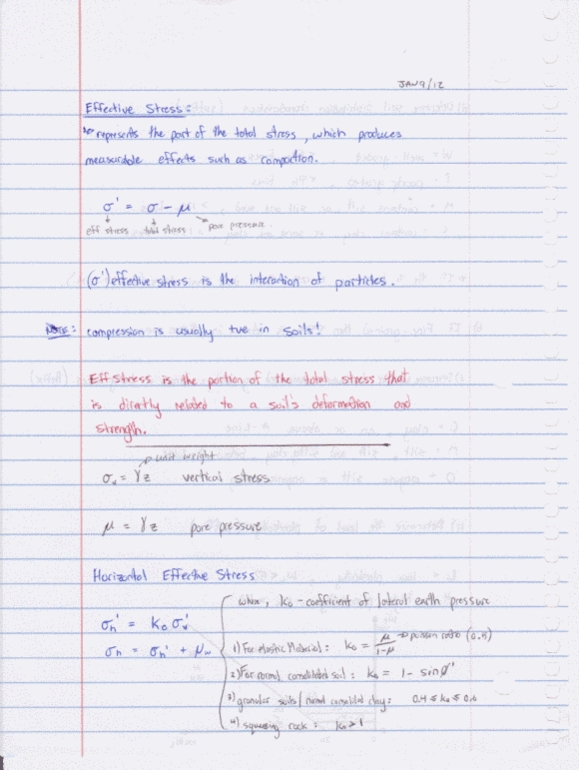 JAN 9/12
Effective Stress:
represents the part of the total stress, which produces
measurable effects such as compaction.
σ' = σ - μ
eff stress total stress pore pressure
(σ') effective stress is the interaction of particles.
NOTE: compression is usually +ve in soils!
Eff Stress is the portion of the total stress that
is directly related to a soil's deformation and
strength.
unit weight
σv = γz vertical stress
μ = γz pore pressure
Horizontal Effective Stress
when, ko - coefficient of lateral earth pressure
σh' = ko σv'
σh = σh' + μw
1) For elastic Material: ko = μ/1-μ → poisson ratio (0.5)
2) For normal consolidated soil: ko = 1 - sinφ'
3) granular soils/normal consolidated clay: 0.4 ≤ ko ≤ 0.6
4) squeezing rock: ko > 1